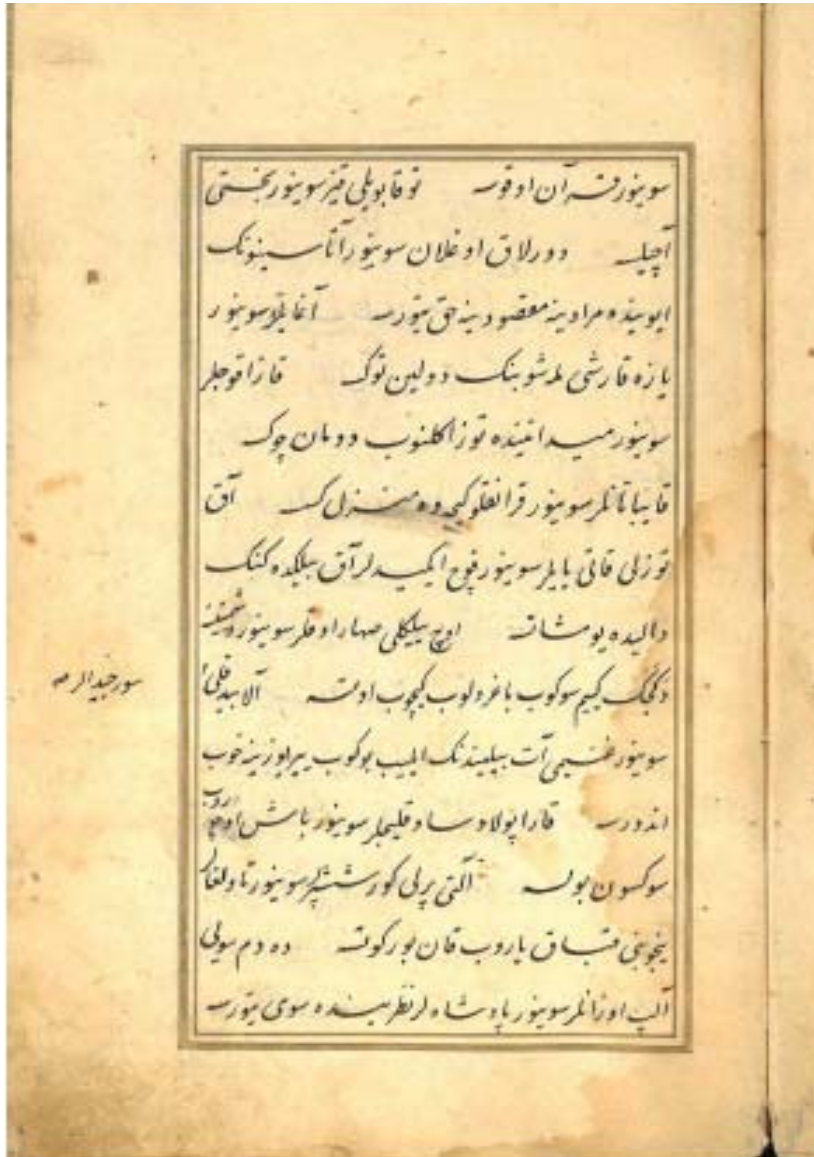 سوینور قرآن اوقوسه توقا بویلی قیز سوینور بختی
آچیلسه دورلاق اوغلان سوینور آتاسینونک
ایوینده مرادینه مقصودینه حق یتورسه آغایلار سوینور
یازه قارشی دولین توک قازاقوجلر
سوینور میدانینده توز اکلنوب دومان چوکسه
قایباتانلر سوینور قرانقلو کیجه ده منزل کسسه آق
توزلی قاتی یایلر سوینور قوچ ایکیدلر آق بیلکده کنک
دالیده یومشاتسه اوچ ییلکلی اوقلر سوینور
کیم سوکوب باغرولوب کیچوب اوتسه آلا
سوینور غنیمی آت بیلیندنک ایلیب بوکوب ییر یوزینه خوب
اندورسه قارا پولاد ساو قلیچلر سوینور باش
سوکسون بولسه آلتی پرلی کورز ششپرلر سوینور تاولغالر
ینجوبنی قباق یاروب قان بورکوتسه ده دم سویلی
آلپ اوزانلر سوینور پادشاه لر نظرینده سوی یتورسه